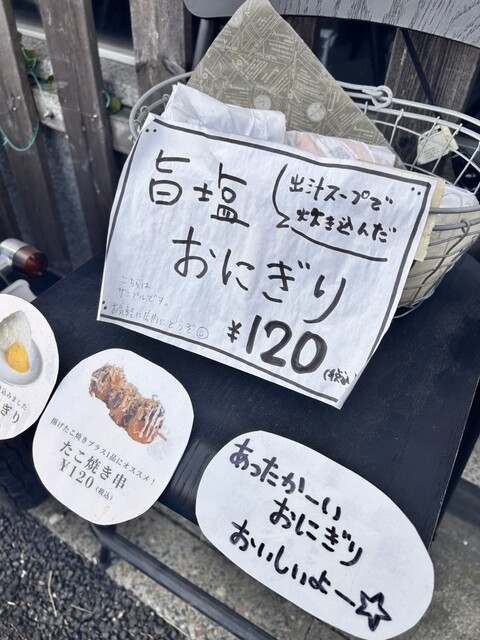 旨塩
おにぎり
出汁スープで
炊き込んだ
こちらは
サンプルです。
お気軽に店内にどうぞ☺
¥120
(税込)
ぎり
揚げたこ焼きプラス1品にオススメ!
たこ焼き串
¥120(税込)
あったかーい
おにぎり
おいしいよー☆